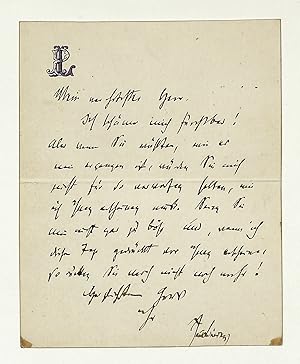 PL
Mein verehrtester Herr.
Ich schäme mich furchtbar!
Aber wenn Sie wüßten, wie es
mir ergangen ist, würden Sie mich
nicht für so verworfen halten, wie
ich Ihnen erscheinen muß. Seien Sie
mir nicht gar zu böse und, wenn ich
diese Tage gedrückt vor Ihnen erscheine,
so drücken Sie mich nicht noch mehr!
Ihr